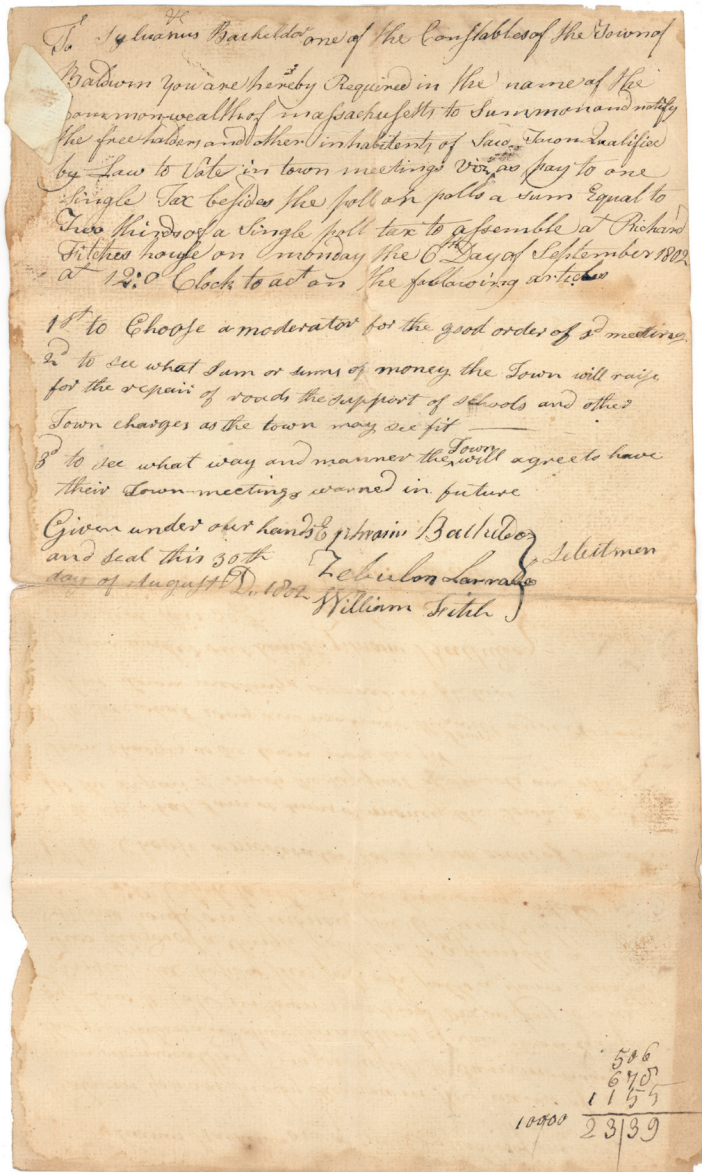 To Sylvanus Bacheldor one of the Constables of the Town of
Baldwin you are hereby Required in the name of the
Commonwealth of massachusests to Summon and notify
the free holders and other inhabitents of Said Town Qualified
by Law to Vote in town meetings Viz as pay to one
Single Tax besides the poll or polls a sum Equal to
Two thirds of a Single poll tax to assemble at Richard
Fitches house on monday the 6th Day of September 1802
at 12:0 Clock to act on the following articles
1st to Choose a moderator for the good order of sd meeting
2d to see what Sum or sums of money the Town will raise
for the repair of roads the support of schools and other
Town charges as the town may see fit
3d to see what way and manner the Town will agree to have
their Town meetings warned in future
Given under our hands Ephraim Bacheldor
and seal this 30th Zebulon Larrabe Selectmen
day of August AD. 1802 William Fitch
506
678
1155
10900 23|39